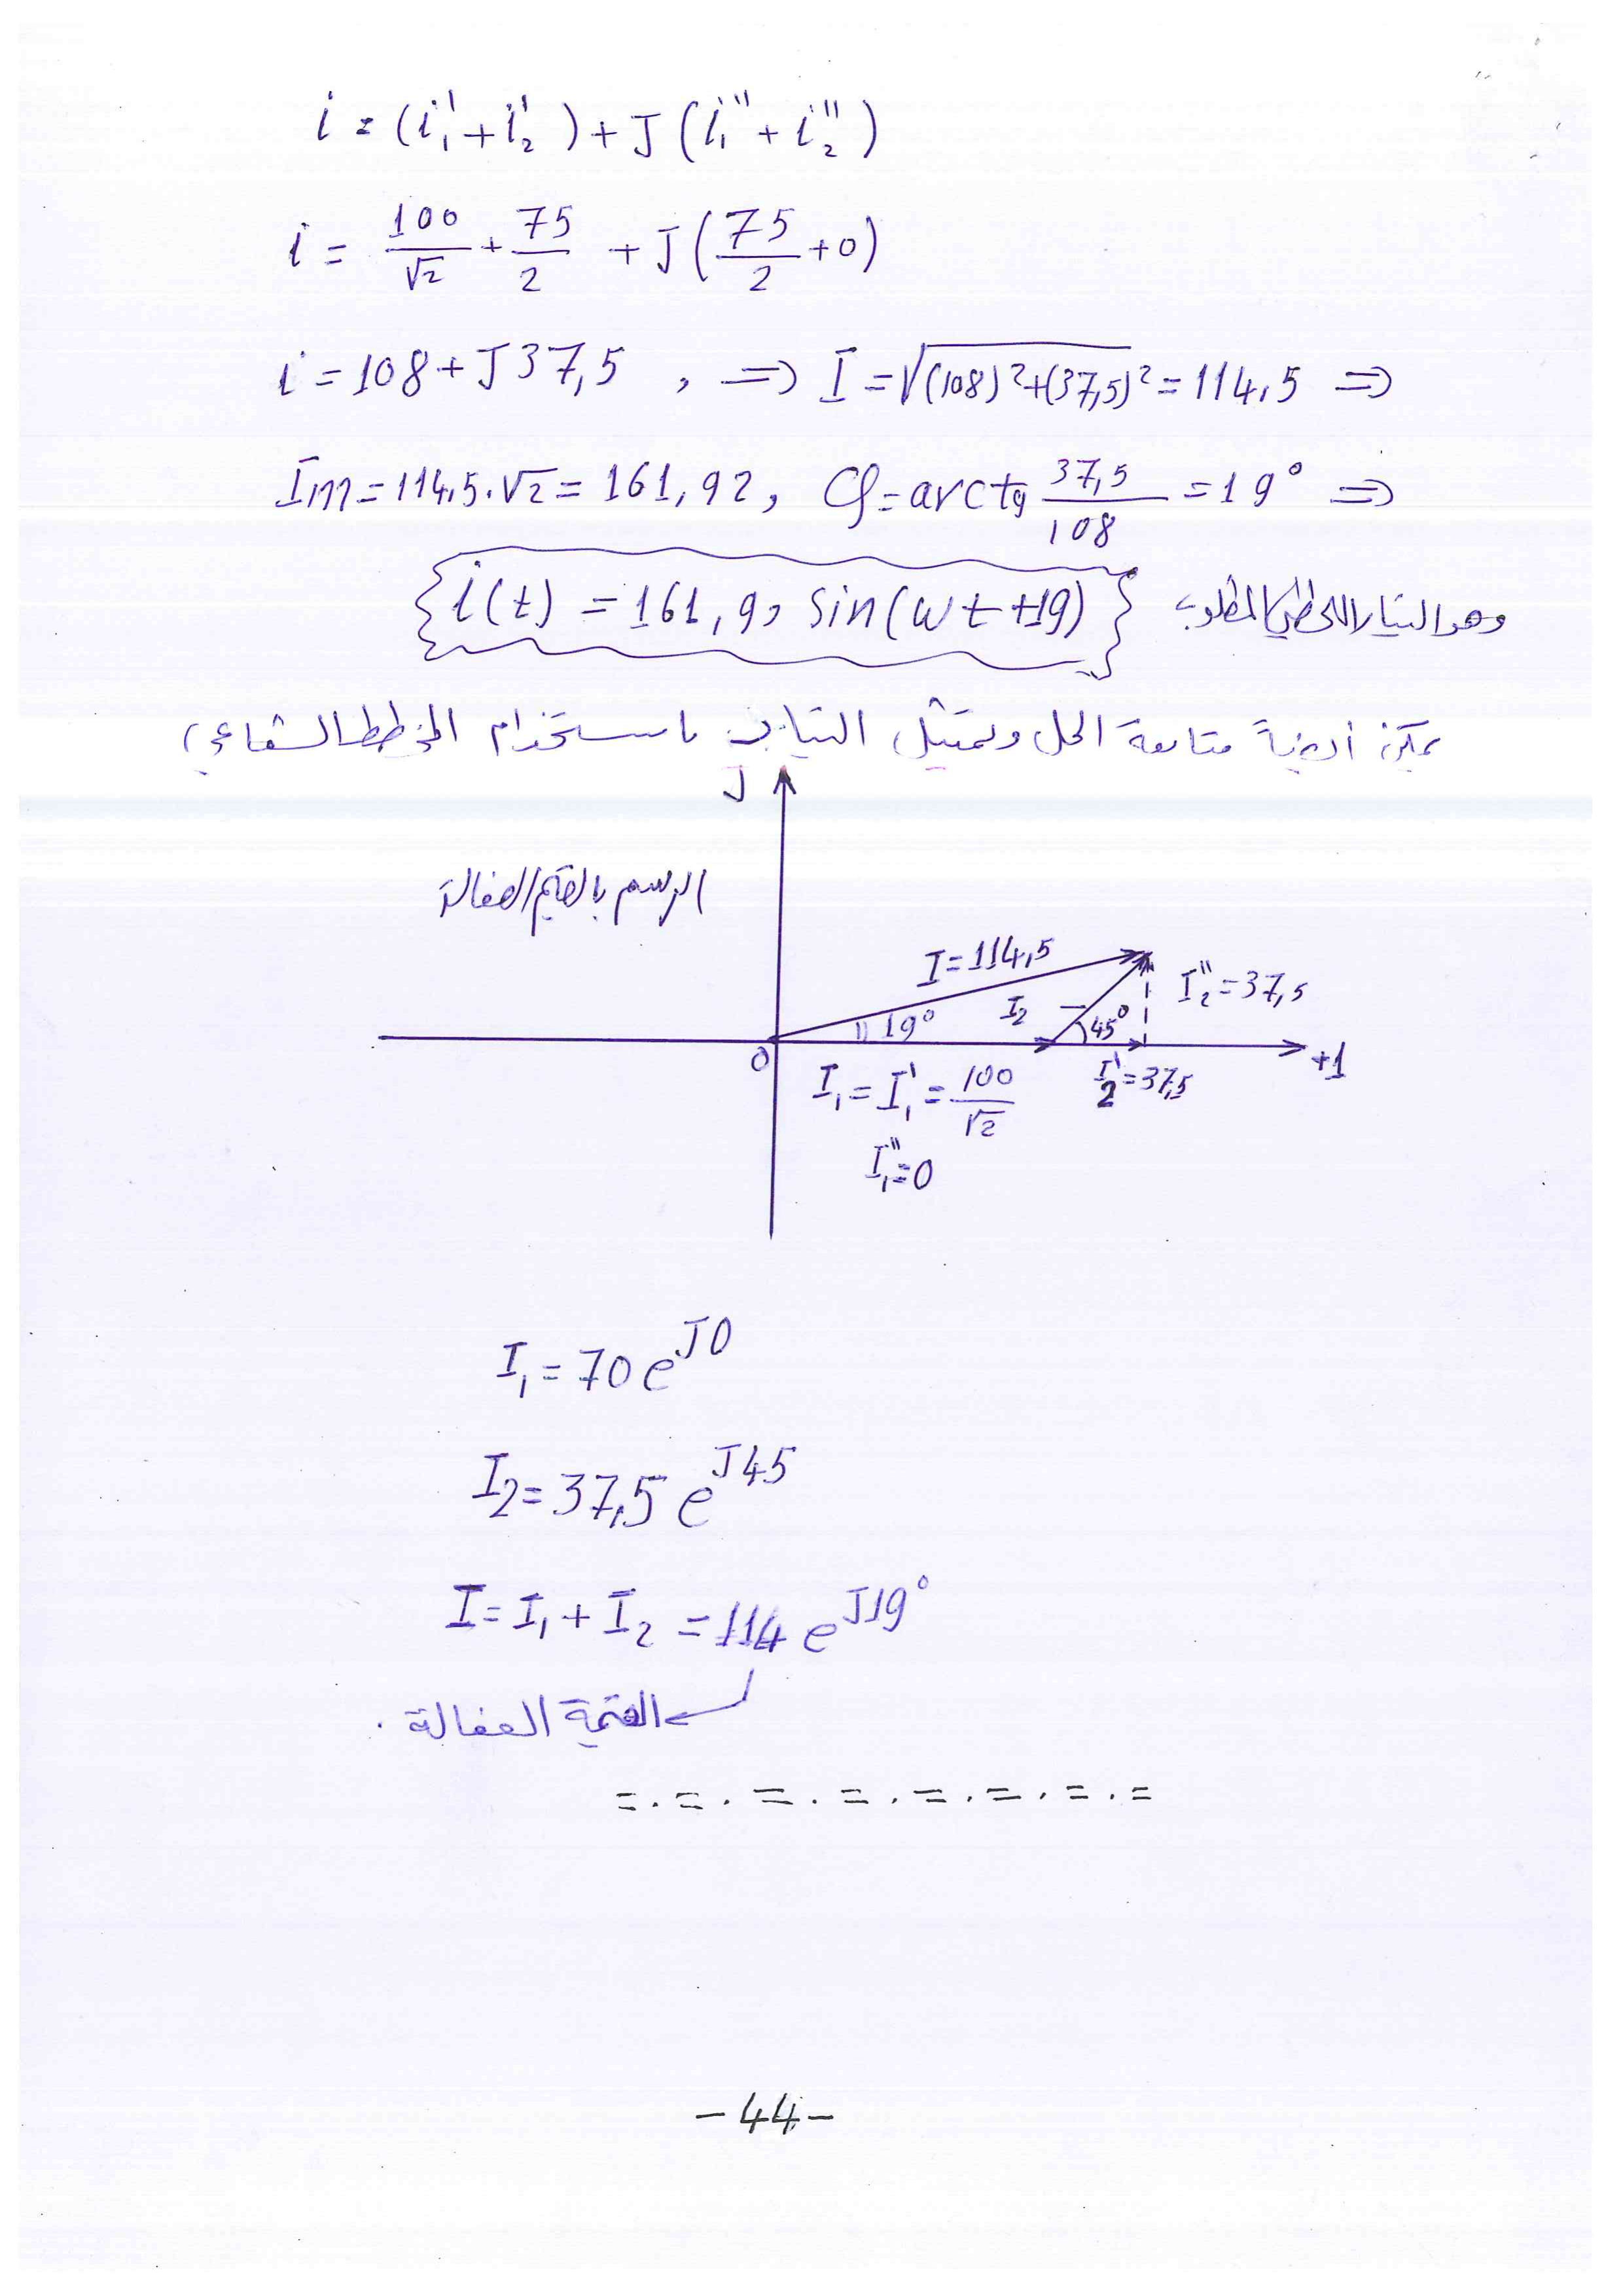 i = (i₁' + i₂') + J (i₁'' + i₂'')
i = 100/√2 + 75/2 + J (75/2 + 0)
i = 108 + J 37,5 , ⇒ I = √(108)² + (37,5)² = 114,5 ⇒
Im = 114,5 . √2 = 161,92 , φ = arctg 37,5/108 = 19° ⇒
i(t) = 161,92 sin(ωt + 19) وهو التيار اللحظي المطلوب
يمكن أيضاً متابعة الحل وتمثيل التيارات باستخدام المخطط الشعاعي
J
الرسم بالقيم الفعالة
I = 114,5
I₂'' = 37,5
I₂
19°
45°
0
+1
I₁ = I₁' = 100/√2
I₂' = 37,5
I₁'' = 0
I₁ = 70 e^J0
I₂ = 37,5 e^J45
I = I₁ + I₂ = 114 e^J19°
القيمة الفعالة .
= . = . = . = . = . = . = . =
- 44 -